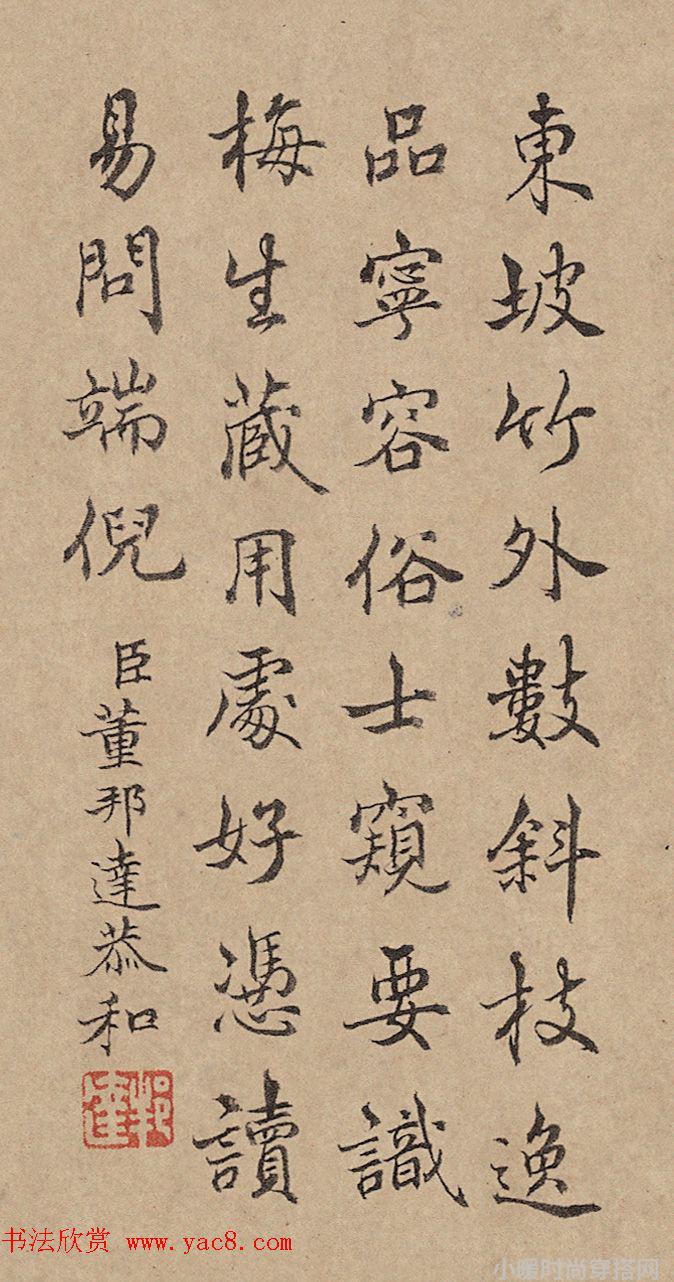 東坡竹外數斜枝逸
品寧容俗士窺要識
梅生蔵用處好憑讀
易問端倪
臣董邦達恭和
邦達
书法欣赏 www.yac8.com
小暖时尚穿搭网